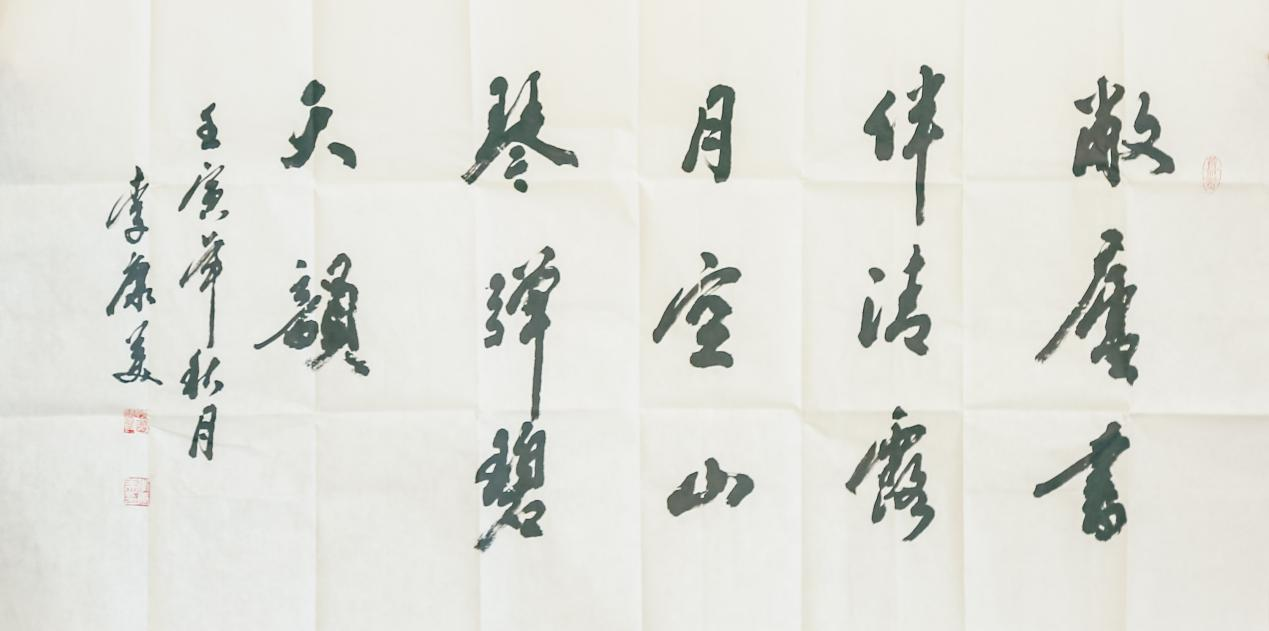 敝廬書
伴清露
月空山
琴彈碧
天韻
壬寅年秋月
李康美